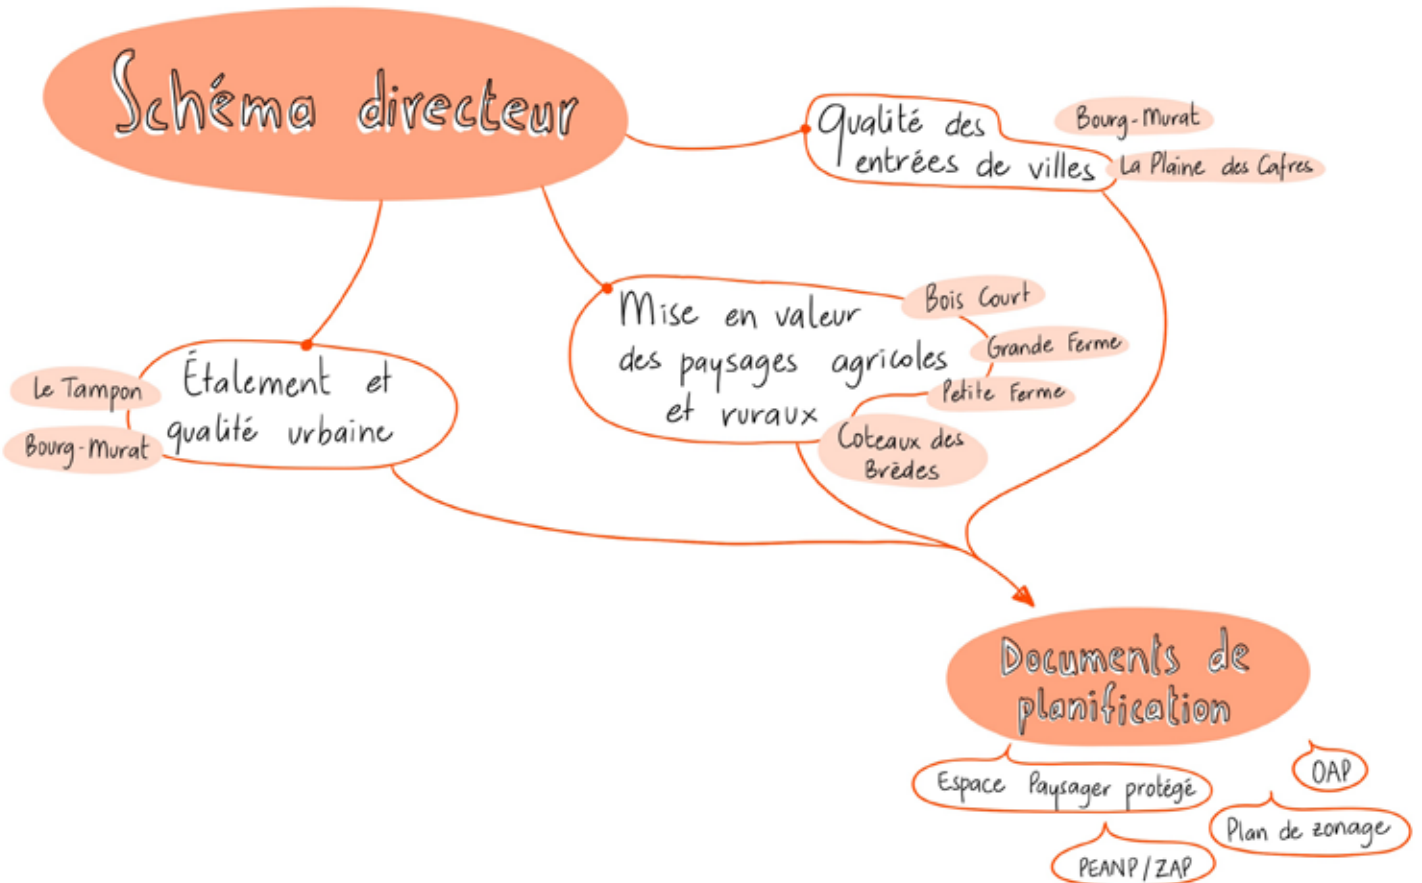 Schéma directeur
Qualité des
entrées de villes
Bourg-Murat
La Plaine des Cafres
Mise en valeur
des paysages agricoles
et ruraux
Bois Court
Grande Ferme
Petite Ferme
Coteaux des
Brèdes
Étalement et
qualité urbaine
Le Tampon
Bourg-Murat
Documents de
planification
Espace Paysager protégé
OAP
Plan de zonage
PEANP/ZAP